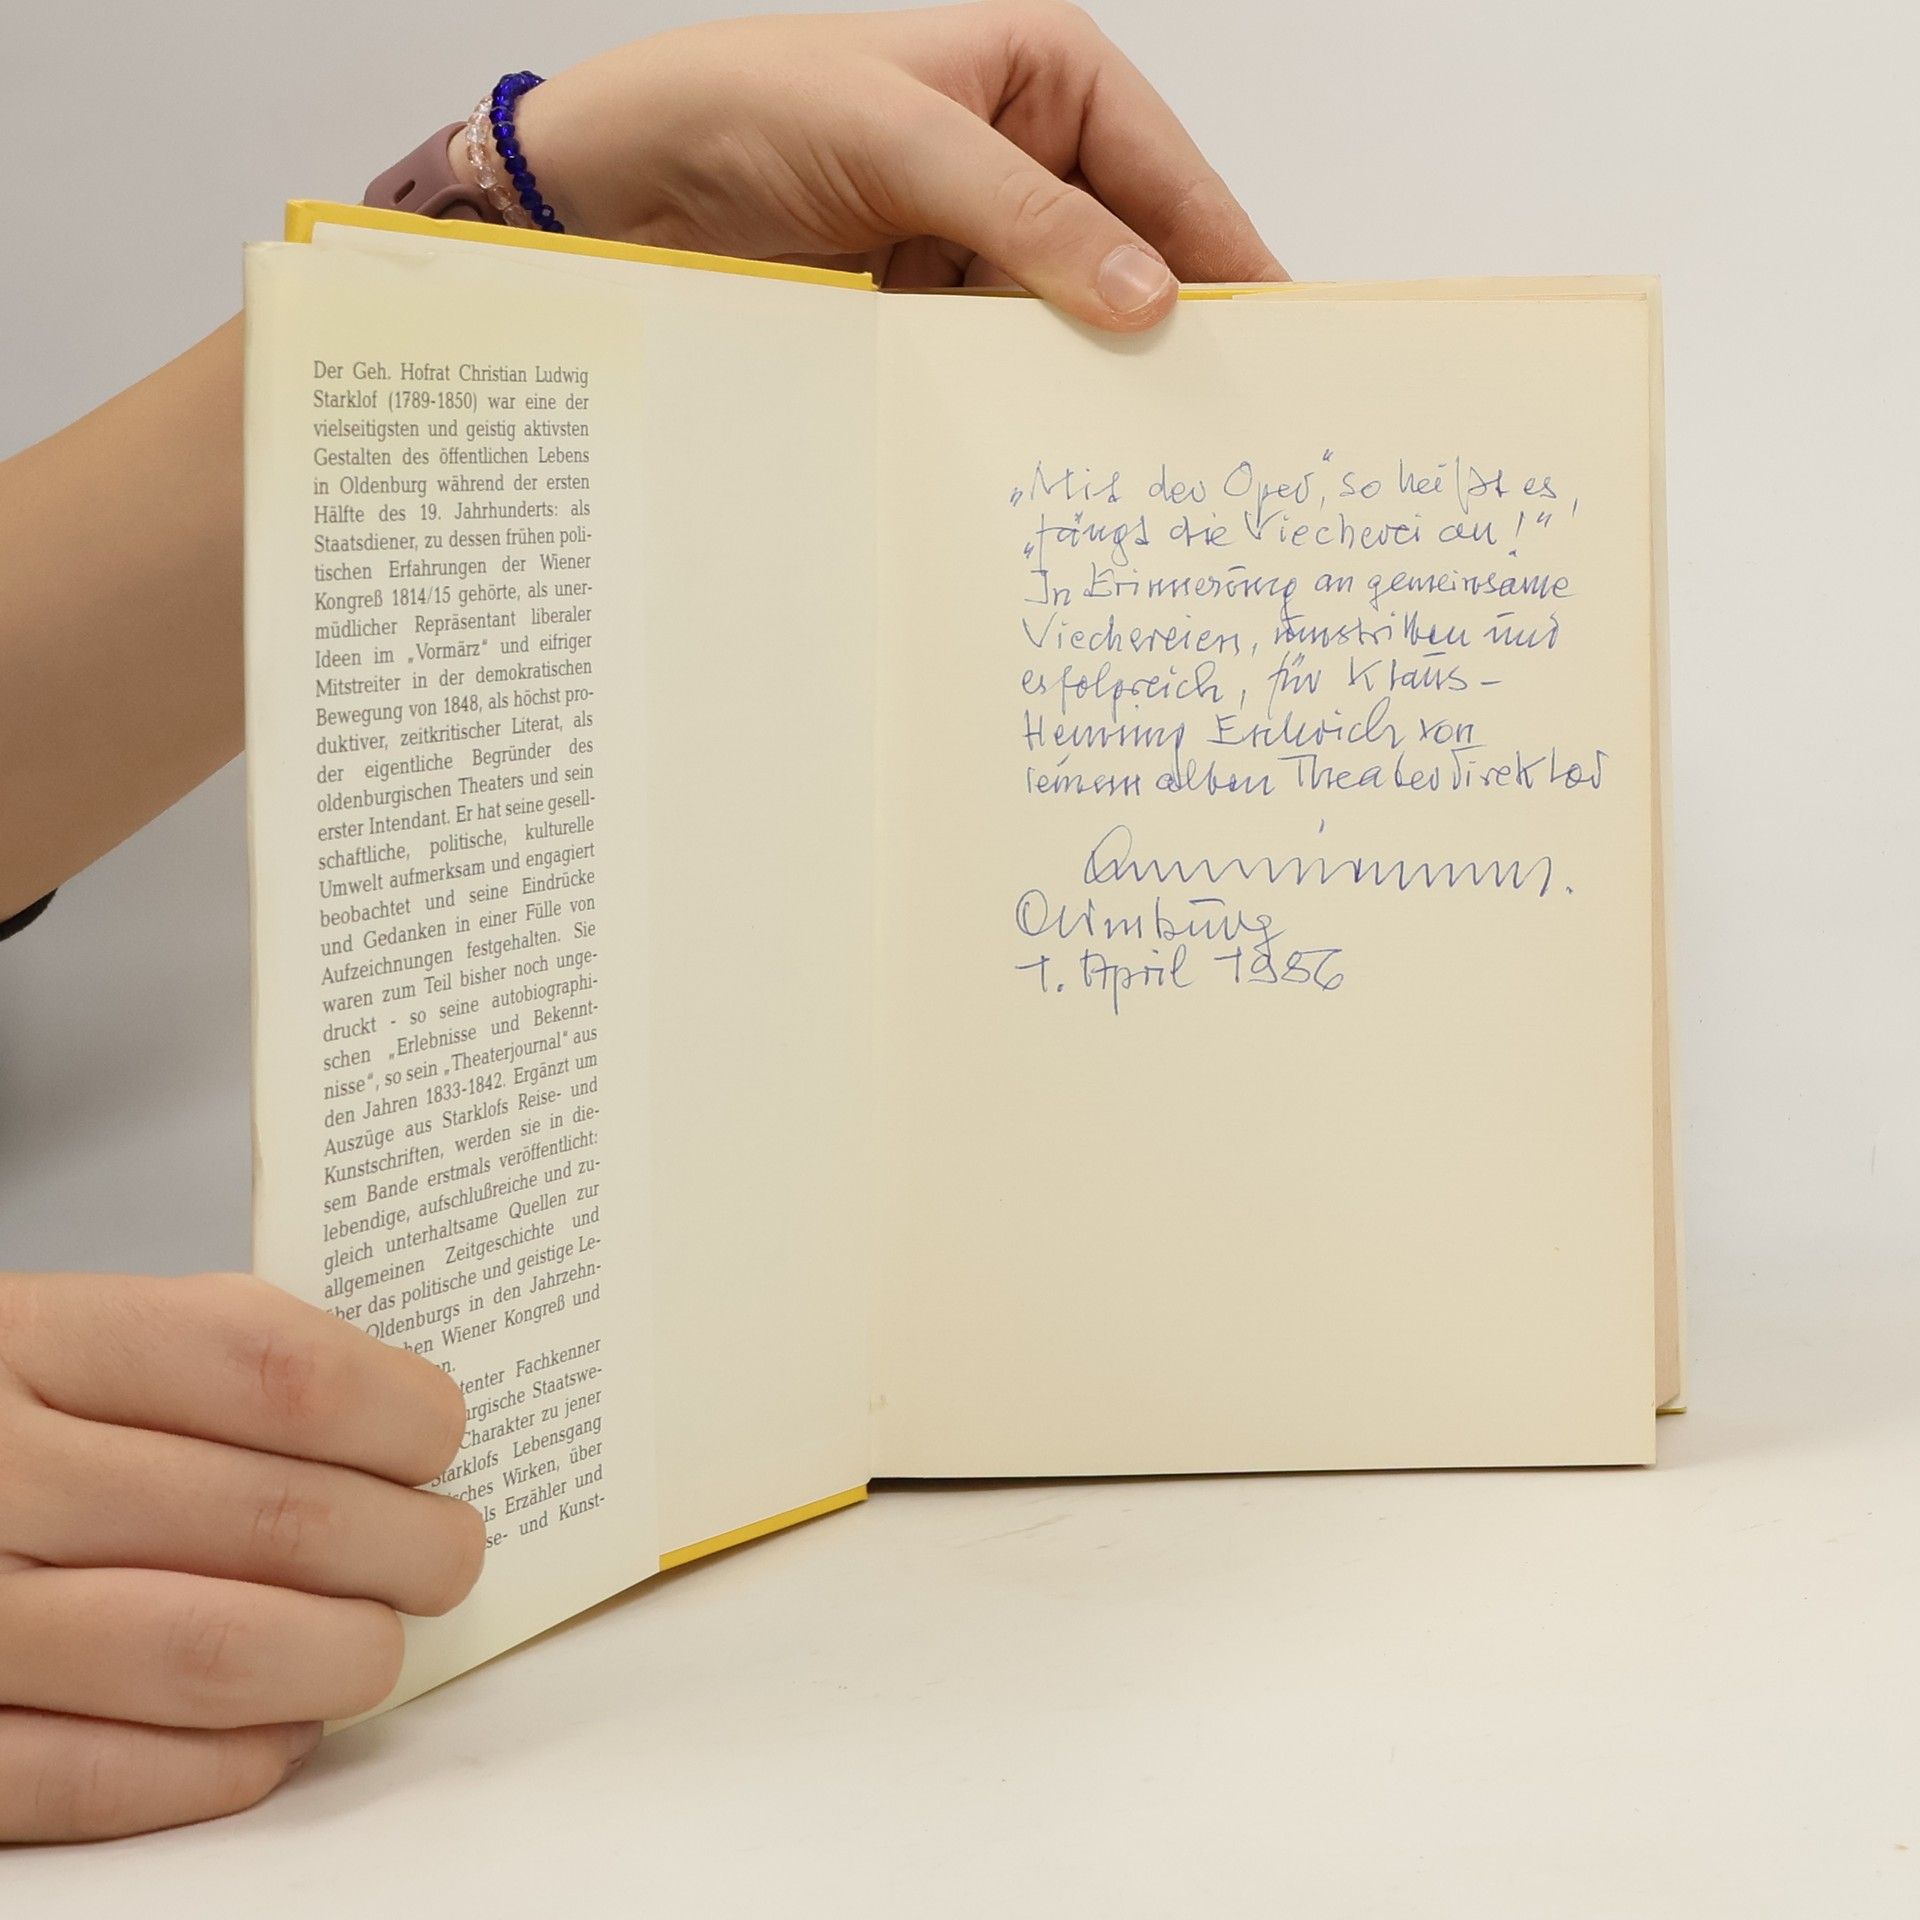 Der Geh. Hofrat Christian Ludwig
Starklof (1789-1850) war eine der
vielseitigsten und geistig aktivsten
Gestalten des öffentlichen Lebens
in Oldenburg während der ersten
Hälfte des 19. Jahrhunderts: als
Staatsdiener, zu dessen frühen poli-
tischen Erfahrungen der Wiener
Kongreß 1814/15 gehörte, als uner-
müdlicher Repräsentant liberaler
Ideen im „Vormärz“ und eifriger
Mitstreiter in der demokratischen
Bewegung von 1848, als höchst pro-
duktiver, zeitkritischer Literat, als
der eigentliche Begründer des
oldenburgischen Theaters und sein
erster Intendant. Er hat seine gesell-
schaftliche, politische, kulturelle
Umwelt aufmerksam und engagiert
beobachtet und seine Eindrücke
und Gedanken in einer Fülle von
Aufzeichnungen festgehalten. Sie
waren zum Teil bisher noch unge-
druckt - so seine autobiographi-
schen „Erlebnisse und Bekennt-
nisse“, so sein „Theaterjournal“ aus
den Jahren 1833-1842. Ergänzt um
Auszüge aus Starklofs Reise- und
Kunstschriften, werden sie in die-
sem Bande erstmals veröffentlicht:
lebendige, aufschlußreiche und zu-
gleich unterhaltsame Quellen zur
allgemeinen Zeitgeschichte und
über das politische und geistige Le-
Oldenburgs in den Jahrzehn-
hen Wiener Kongreß und
n.
tenter Fachkenner
urgische Staatswe-
Charakter zu jener
Starklofs Lebensgang
sches Wirken, über
ls Erzähler und
se- und Kunst-
„Mit der Oper“, so heißt es,
„fängt die Viecherei an!“
In Erinnerung an gemeinsame
Viechereien, umstritten und
erfolgreich, für Klaus-
Henning
von
seinem alten Theaterdirektor
Oldenburg
1. April 1986